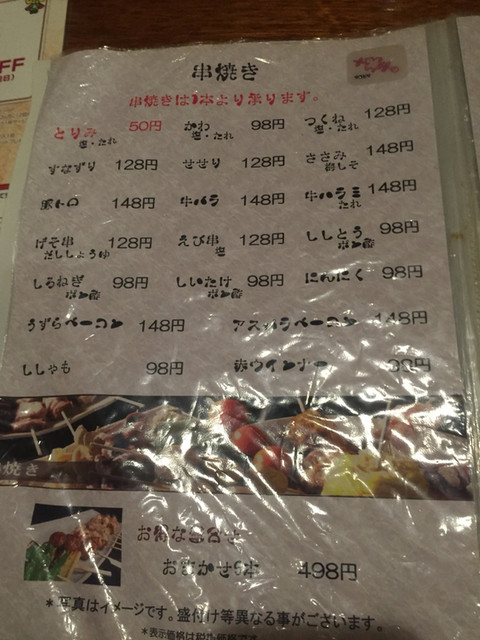 串焼き
串焼きは1本より承ります。
とりみ 50円 かわ 98円 つくね 128円
塩・たれ 塩・たれ 塩・たれ
すなずり 128円 せせり 128円 ささみ 148円
梅しそ
豚トロ 148円 牛バラ 148円 牛ハラミ 148円
たれ
げそ串 128円 えび串 128円 ししとう 98円
だししょうゆ 塩 ポン酢
しろねぎ 98円 しいたけ 98円 にんにく 98円
ポン酢 ポン酢
うずらベーコン 148円 アスパラベーコン 148円
ししゃも 98円 赤ウインナー 98円
焼き
お得な
おまかせ6本 498円
*写真はイメージです。盛付け等異なる事がございます。
*表示価格は税
FF